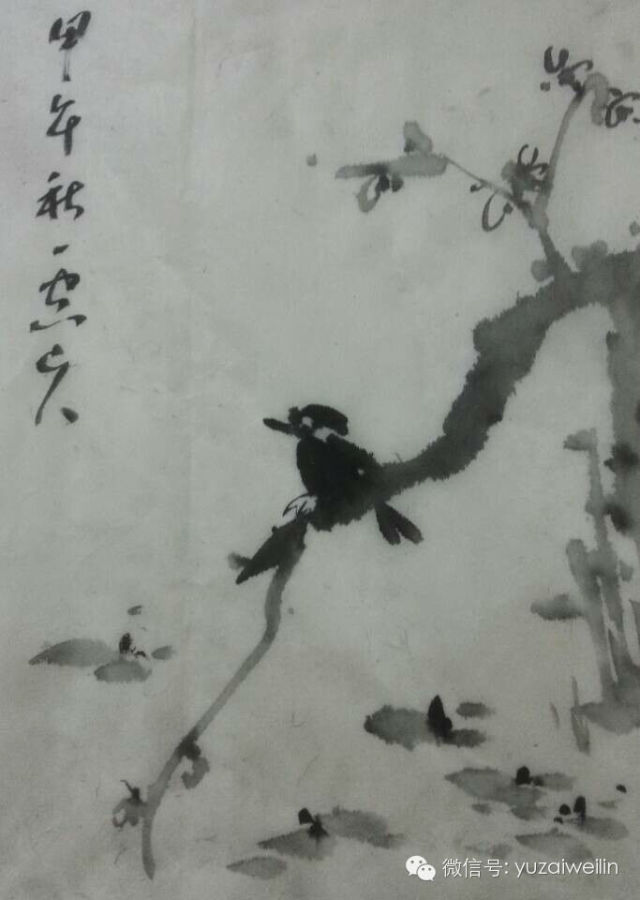 甲午秋
微信号: yuzaiweilin